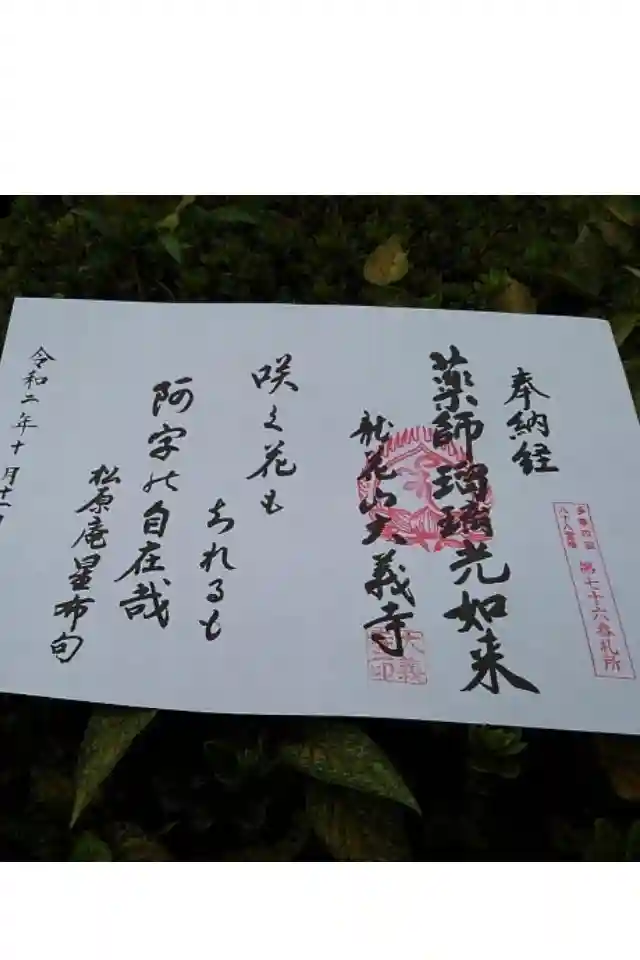 多摩四国
八十八霊場
第七十六番札所
奉納経
薬師瑠璃光如来
龍花山大義寺
大義
咲く花も
ちれるも
阿字の自在哉
松原庵星布句
令和二年十月十一日